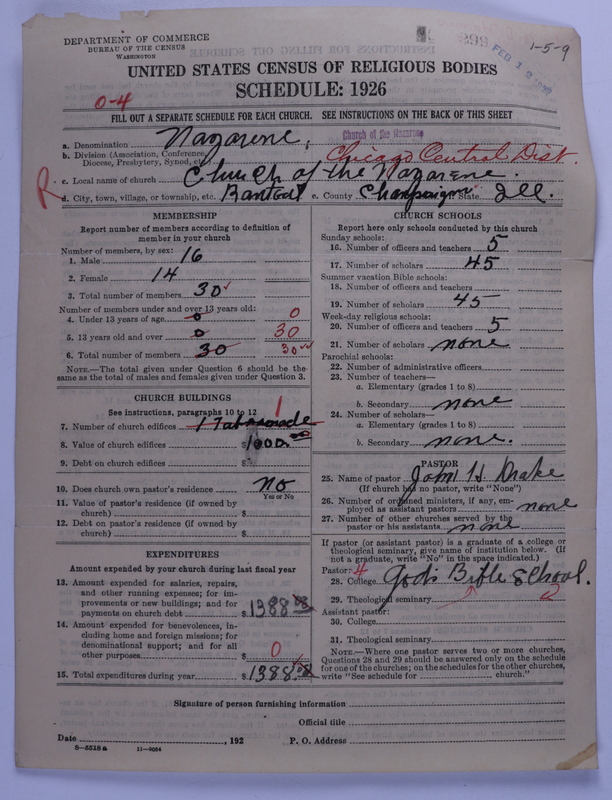 DEPARTMENT OF COMMERCE
BUREAU OF THE CENSUS
WASHINGTON
FEB 1 2
1-5-9
UNITED STATES CENSUS OF RELIGIOUS BODIES
SCHEDULE: 1926
0-4
FILL OUT A SEPARATE SCHEDULE FOR EACH CHURCH. SEE INSTRUCTIONS ON THE BACK OF THIS SHEET
Church of the Nazarene
a. Denomination Nazarene,
b. Division (Association, Conference, Diocese, Presbytery, Synod, etc.) Chicago Central Dist.
R
c. Local name of church Church of the Nazarene.
d. City, town, village, or township, etc. Rantoul e. County Champaign State Ill.
MEMBERSHIP
Report number of members according to definition of
member in your church
Number of members, by sex:
1. Male 16
2. Female 14
3. Total number of members 30
Number of members under and over 13 years old:
4. Under 13 years of age 0 0
5. 13 years old and over 0 30
6. Total number of members 30 30
NOTE.—The total given under Question 6 should be the
same as the total of males and females given under Question 3.
CHURCH BUILDINGS
See instructions, paragraphs 10 to 12
1
7. Number of church edifices 1
8. Value of church edifices $1000.00
9. Debt on church edifices $
10. Does church own pastor's residence No
Yes or No
11. Value of pastor's residence (if owned by
church) $
12. Debt on pastor's residence (if owned by
church) $
EXPENDITURES
Amount expended by your church during last fiscal year
13. Amount expended for salaries, repairs,
and other running expenses; for im-
provements or new buildings; and for
payments on church debt $1388.08
14. Amount expended for benevolences, in-
cluding home and foreign missions; for
denominational support; and for all
other purposes $ 0
15. Total expenditures during year $1388.08
CHURCH SCHOOLS
Report here only schools conducted by this church
Sunday schools:
16. Number of officers and teachers 5
17. Number of scholars 45
Summer vacation Bible schools:
18. Number of officers and teachers
19. Number of scholars 45
Week-day religious schools:
20. Number of officers and teachers 5
21. Number of scholars none
Parochial schools:
22. Number of administrative officers
23. Number of teachers—
a. Elementary (grades 1 to 8)
b. Secondary none
24. Number of scholars—
a. Elementary (grades 1 to 8)
b. Secondary none.
PASTOR
25. Name of pastor John H. Drake
(If church has no pastor, write "None")
26. Number of ordained ministers, if any, em-
ployed as assistant pastors none
27. Number of other churches served by the
pastor or his assistants none
If pastor (or assistant pastor) is a graduate of a college or
theological seminary, give name of institution below. (If
not a graduate, write "No" in the space indicated.)
Pastor: 4
28. College God's Bible School.
29. Theological seminary 2
Assistant pastor:
30. College
31. Theological seminary
NOTE.—Where one pastor serves two or more churches,
Questions 28 and 29 should be answered only on the schedule
for one of the churches; on the schedules for the other churches,
write "See schedule for church."
Signature of person furnishing information
Official title
Date , 192 P. O. Address
8-5518a 11-9034